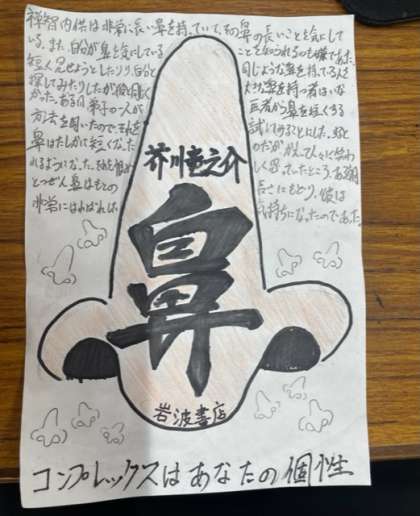 禅智内供は非常に長い鼻を持っていて、その鼻の長いことを気にして
いる。また、自分が鼻を気にしていることを知られるのも嫌であった。
短く見せようとしたり、自分と同じような鼻を持っている人を
探してみたりしたが彼と同じ大きな鼻を持つ者はいな
かった。ある日弟子の一人が医者から鼻を短くする
方法を聞いたのでそれを試してみることにした。
鼻はたしかに短くなったのだが、かえって人々に笑わ
れるようになった。それを恨めしく思っていたところ、ある朝
とつぜん鼻はもとの長さにもどり、彼は
非常にはればれ気持ちになったのであった。
芥川竜之介
鼻
岩波書店
コンプレックスはあなたの個性